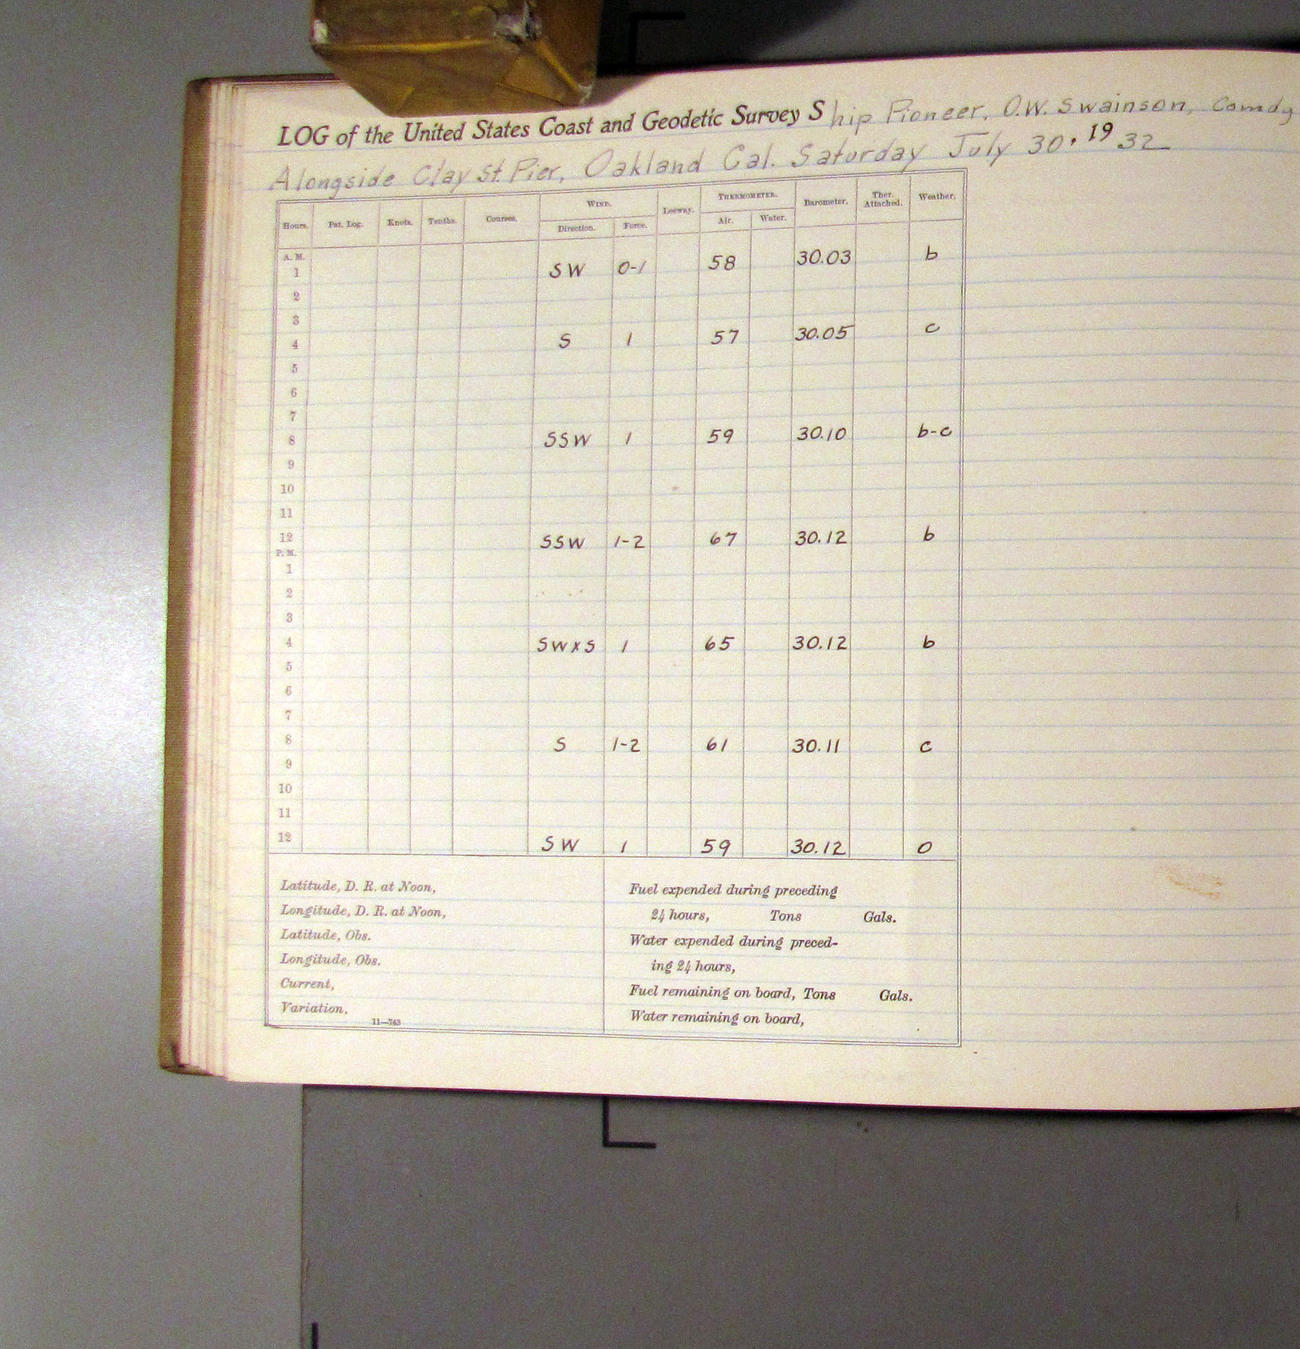 LOG of the United States Coast and Geodetic Survey Ship Pioneer, O.W. Swainson, Comdg
Alongside Clay St. Pier, Oakland Cal. Saturday July 30, 1932
Hours. Pat. Log. Knots. Tenths. Courses. WIND. Leeway. THERMOMETER. Barometer. Ther. Attached. Weather.
Direction. Force. Air. Water.
A. M.
1 SW 0-1 58 30.03 b
2
3
4 S 1 57 30.05 c
5
6
7
8 SSW 1 59 30.10 b-c
9
10
11
12 SSW 1-2 67 30.12 b
P. M.
1
2
3
4 SWxS 1 65 30.12 b
5
6
7
8 S 1-2 61 30.11 c
9
10
11
12 SW 1 59 30.12 o
Latitude, D. R. at Noon,
Longitude, D. R. at Noon,
Latitude, Obs.
Longitude, Obs.
Current,
Variation,
11—743
Fuel expended during preceding
24 hours, Tons Gals.
Water expended during preced-
ing 24 hours,
Fuel remaining on board, Tons Gals.
Water remaining on board,